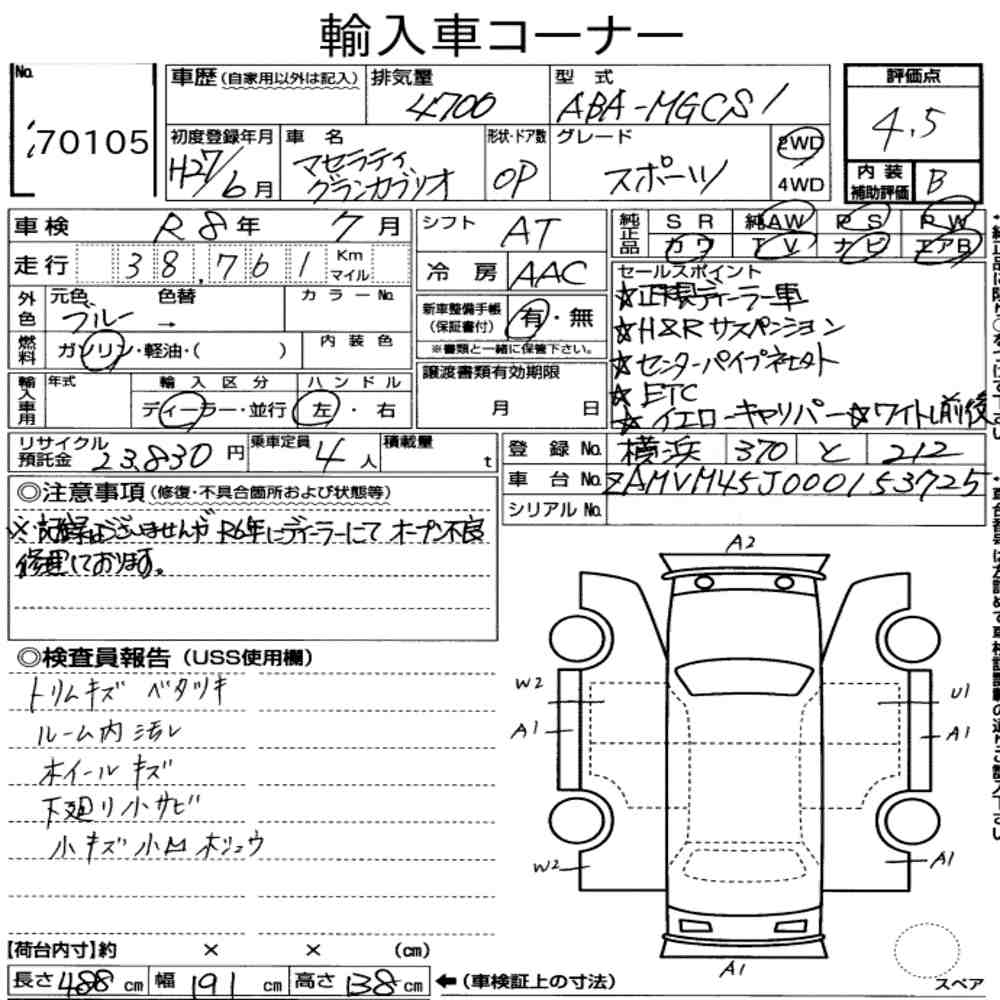 輸入車コーナー
No. i70105
車歴(自家用以外は記入)
排気量 4700
型式 ABA-MGCS1
評価点 4.5
初度登録年月 H27/6月
車名 マセラティ グランカブリオ
形状・ドア数 OP
グレード スポーツ
2WD
4WD
内装補助評価 B
車検 R8年 7月
シフト AT
純正品 SR 純AW PS PW
カワ TV ナビ エアB
走行 38,761 Km マイル
冷房 AAC
セールスポイント
☆正規ディーラー車
☆H&Rサスペンション
☆センターパイプ
☆ETC
☆イエローキャリパー ☆ワイトレ前後
外色 元色 ブルー → 色替
カラーNo.
新車整備手帳(保証書付) 有・無
※書類と一緒に保管下さい。
燃料 ガソリン・軽油・( )
内装色
譲渡書類有効期限 月 日
輸入車用 年式
輸入区分 ディーラー・並行
ハンドル 左・右
リサイクル預託金 23,830円
乗車定員 4人
積載量 t
登録No. 横浜 370 と 212
車台No. ZAMVM45J000153725
シリアルNo.
◎注意事項(修復・不具合箇所および状態等)
※記録はございませんが R6年にディーラーにて オープン不良
修理しております。
◎検査員報告(USS使用欄)
トリムキズ ベタツキ
ルーム内汚レ
ホイールキズ
下廻リ小サビ
小キズ小凹
A2
W2
U1
A1
A1
W2
A1
A1
スペア
【荷台内寸】約 × × (cm)
長さ 488 cm 幅 191 cm 高さ 138 cm ←(車検証上の寸法)